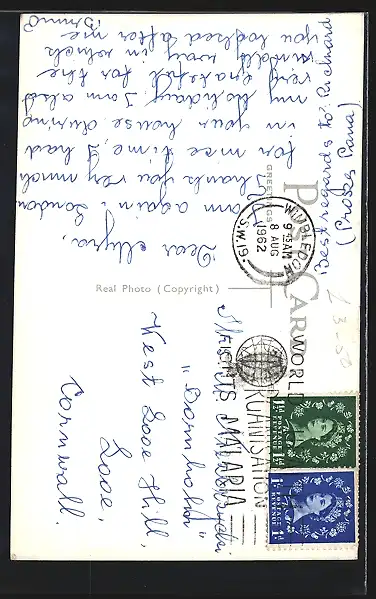 POST CARD
GREETINGS
Real Photo (Copyright)
Dear
I am again in London
I thank you very much
for nice time, I had
in your house during
my holiday. I am also
very grateful for the
kindly way in which
you looked after me
Bruno
Best regards to Richard
WIMBLEDON
9 45 AM
8 AUG
1962
S.W.19.
WORLD
ORGANISATION
MALARIA
"Bornholm"
West Looe Hill,
Looe,
Cornwall.
POSTAGE
REVENUE
1½D
1½D
POSTAGE
REVENUE
1D
1D